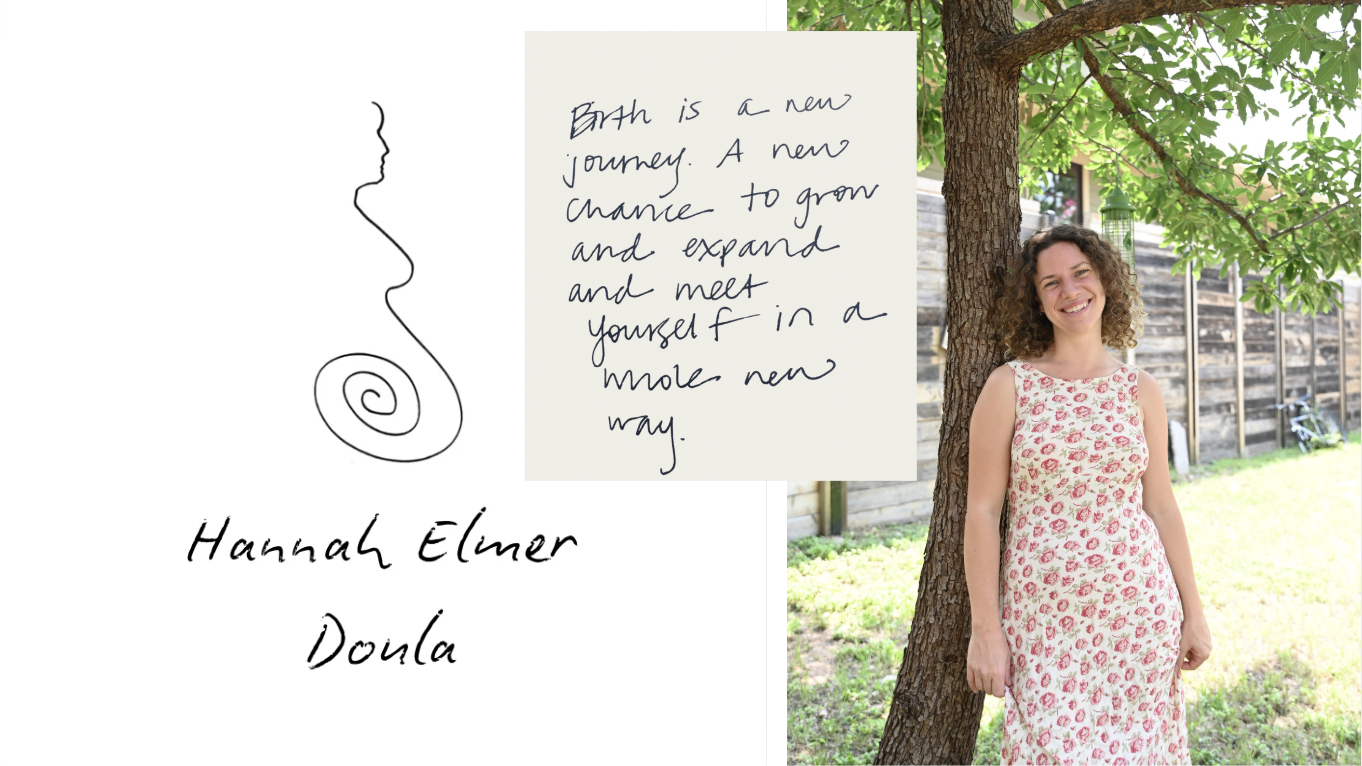 Birth is a new
journey. A new
chance to grow
and expand
and meet
yourself in a
whole new
way.
Hannah Elmer
Doula